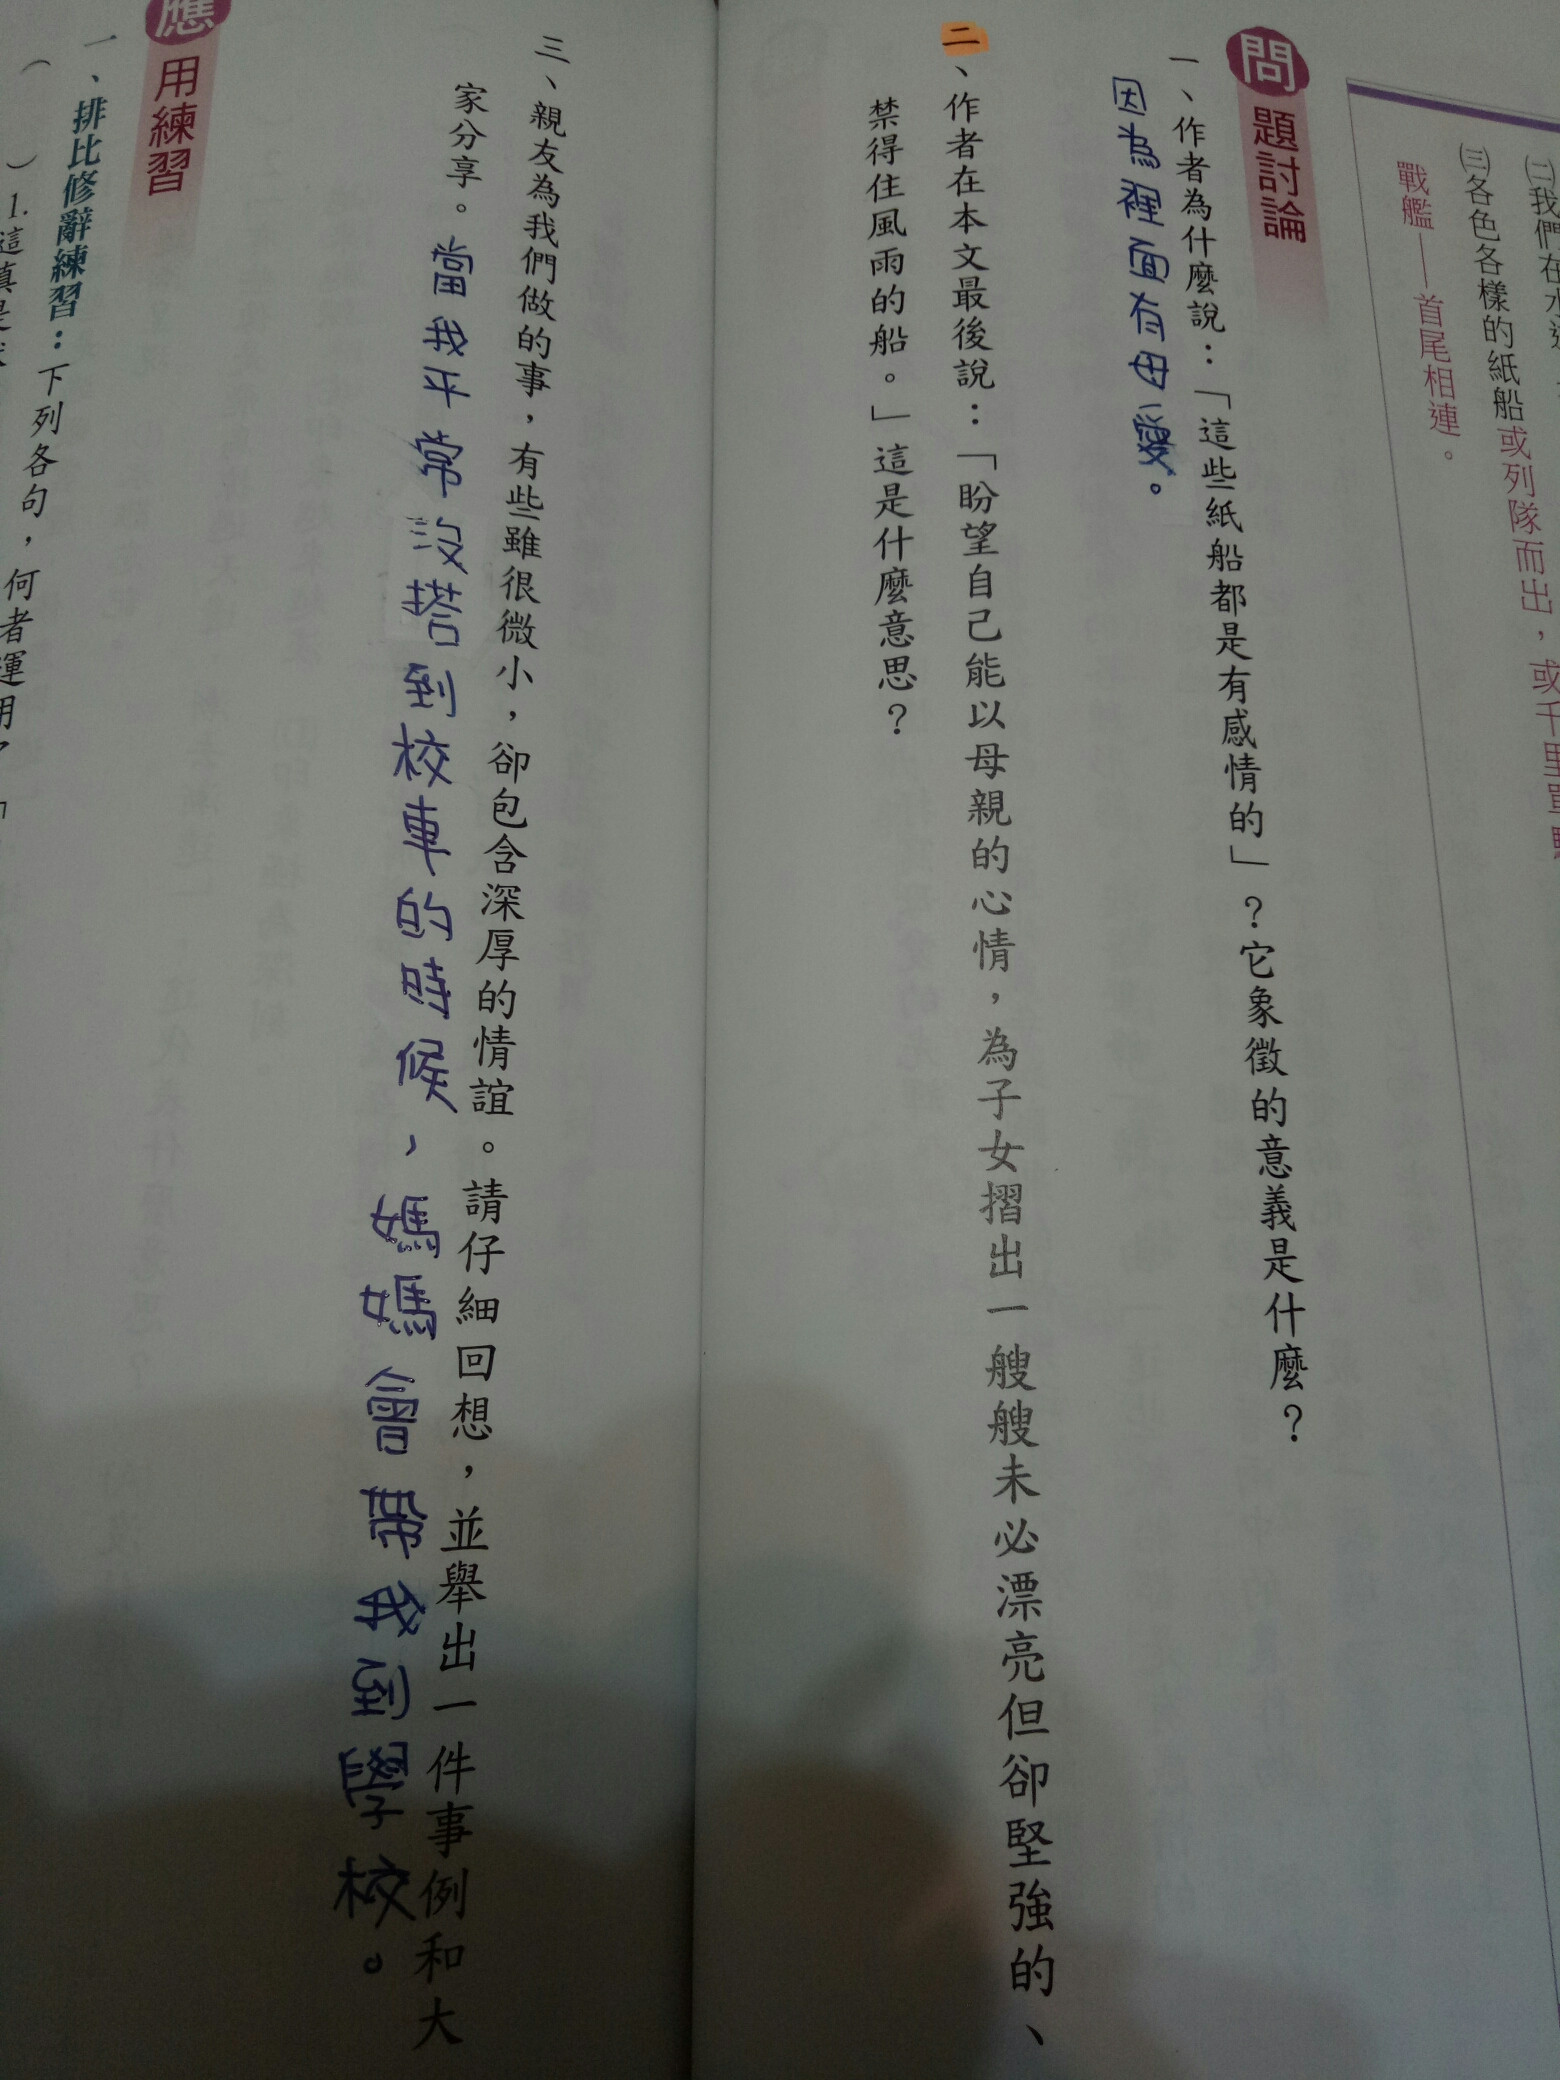 ㈡我們在水
㈢各色各樣的紙船或列隊而出，或千里單
戰艦——首尾相連。
問題討論
一、作者為什麼說：「這些紙船都是有感情的」？它象徵的意義是什麼？
因為裡面有母愛。
二、作者在本文最後說：「盼望自己能以母親的心情，為子女摺出一艘艘未必漂亮但卻堅強的、
禁得住風雨的船。」這是什麼意思？
三、親友為我們做的事，有些雖很微小，卻包含深厚的情誼。請仔細回想，並舉出一件事例和大
家分享。當我平常沒搭到校車的時候，媽媽會帶我到學校。
應用練習
一、排比修辭練習：下列各句，何者運用
（　）1.這真是